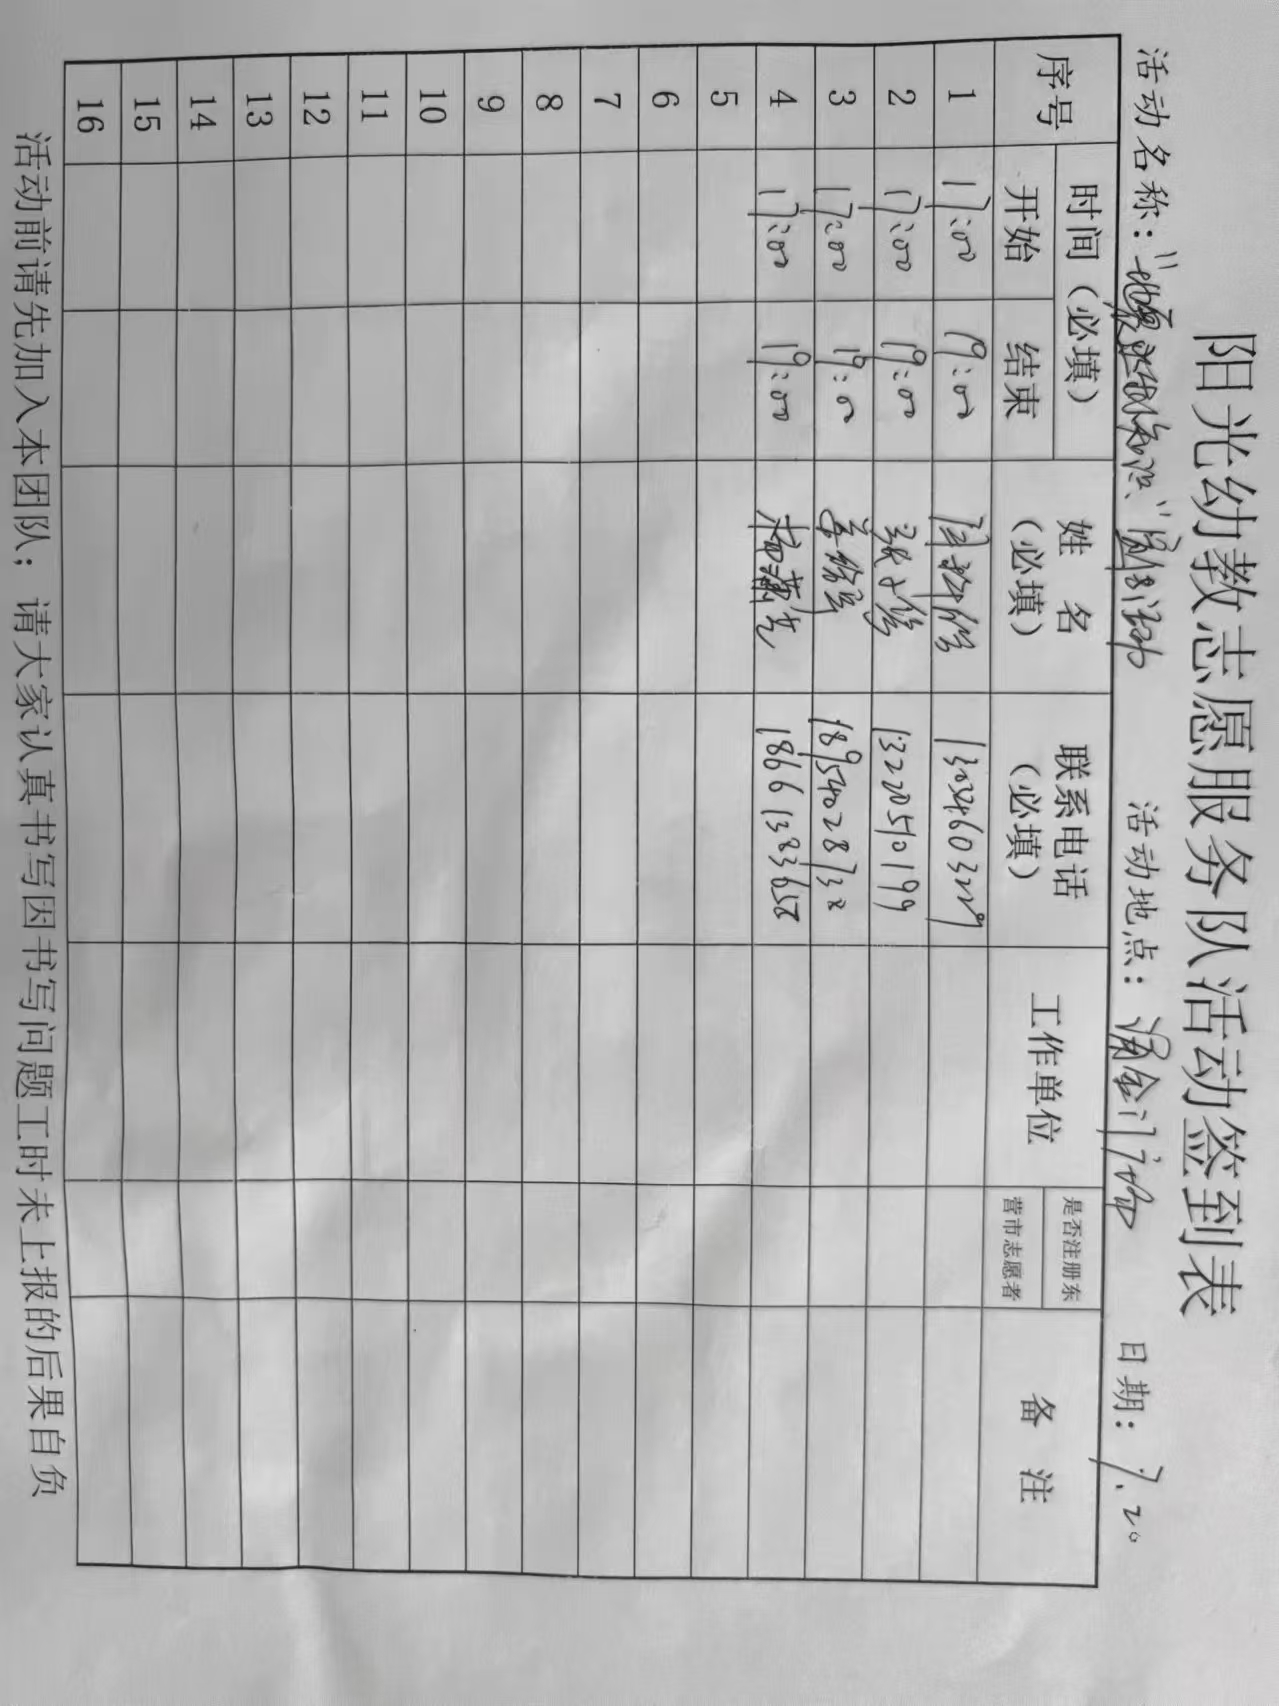 阳光幼教志愿服务队活动签到表
活动名称：“地震 知识”活动 活动地点： 日期：7.20
序号 时间（必填） 姓名（必填） 联系电话（必填） 工作单位 是否注册东营市志愿者 备注
开始 结束
1 17:00 19:00
2 17:00 19:00 13220510199
3 17:00 19:00 18954028738
4 17:00 19:00 18661383658
5
6
7
8
9
10
11
12
13
14
15
16
活动前请先加入本团队；请大家认真书写因书写问题工时未上报的后果自负